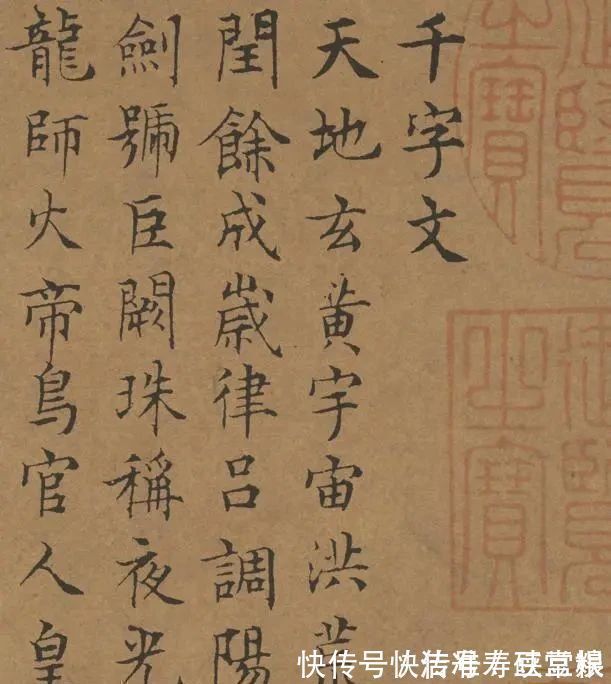 千字文
天地玄黄宇宙洪荒
閏餘成歲律吕調陽
劍號巨闕珠稱夜光
龍師火帝鳥官人皇
快传号